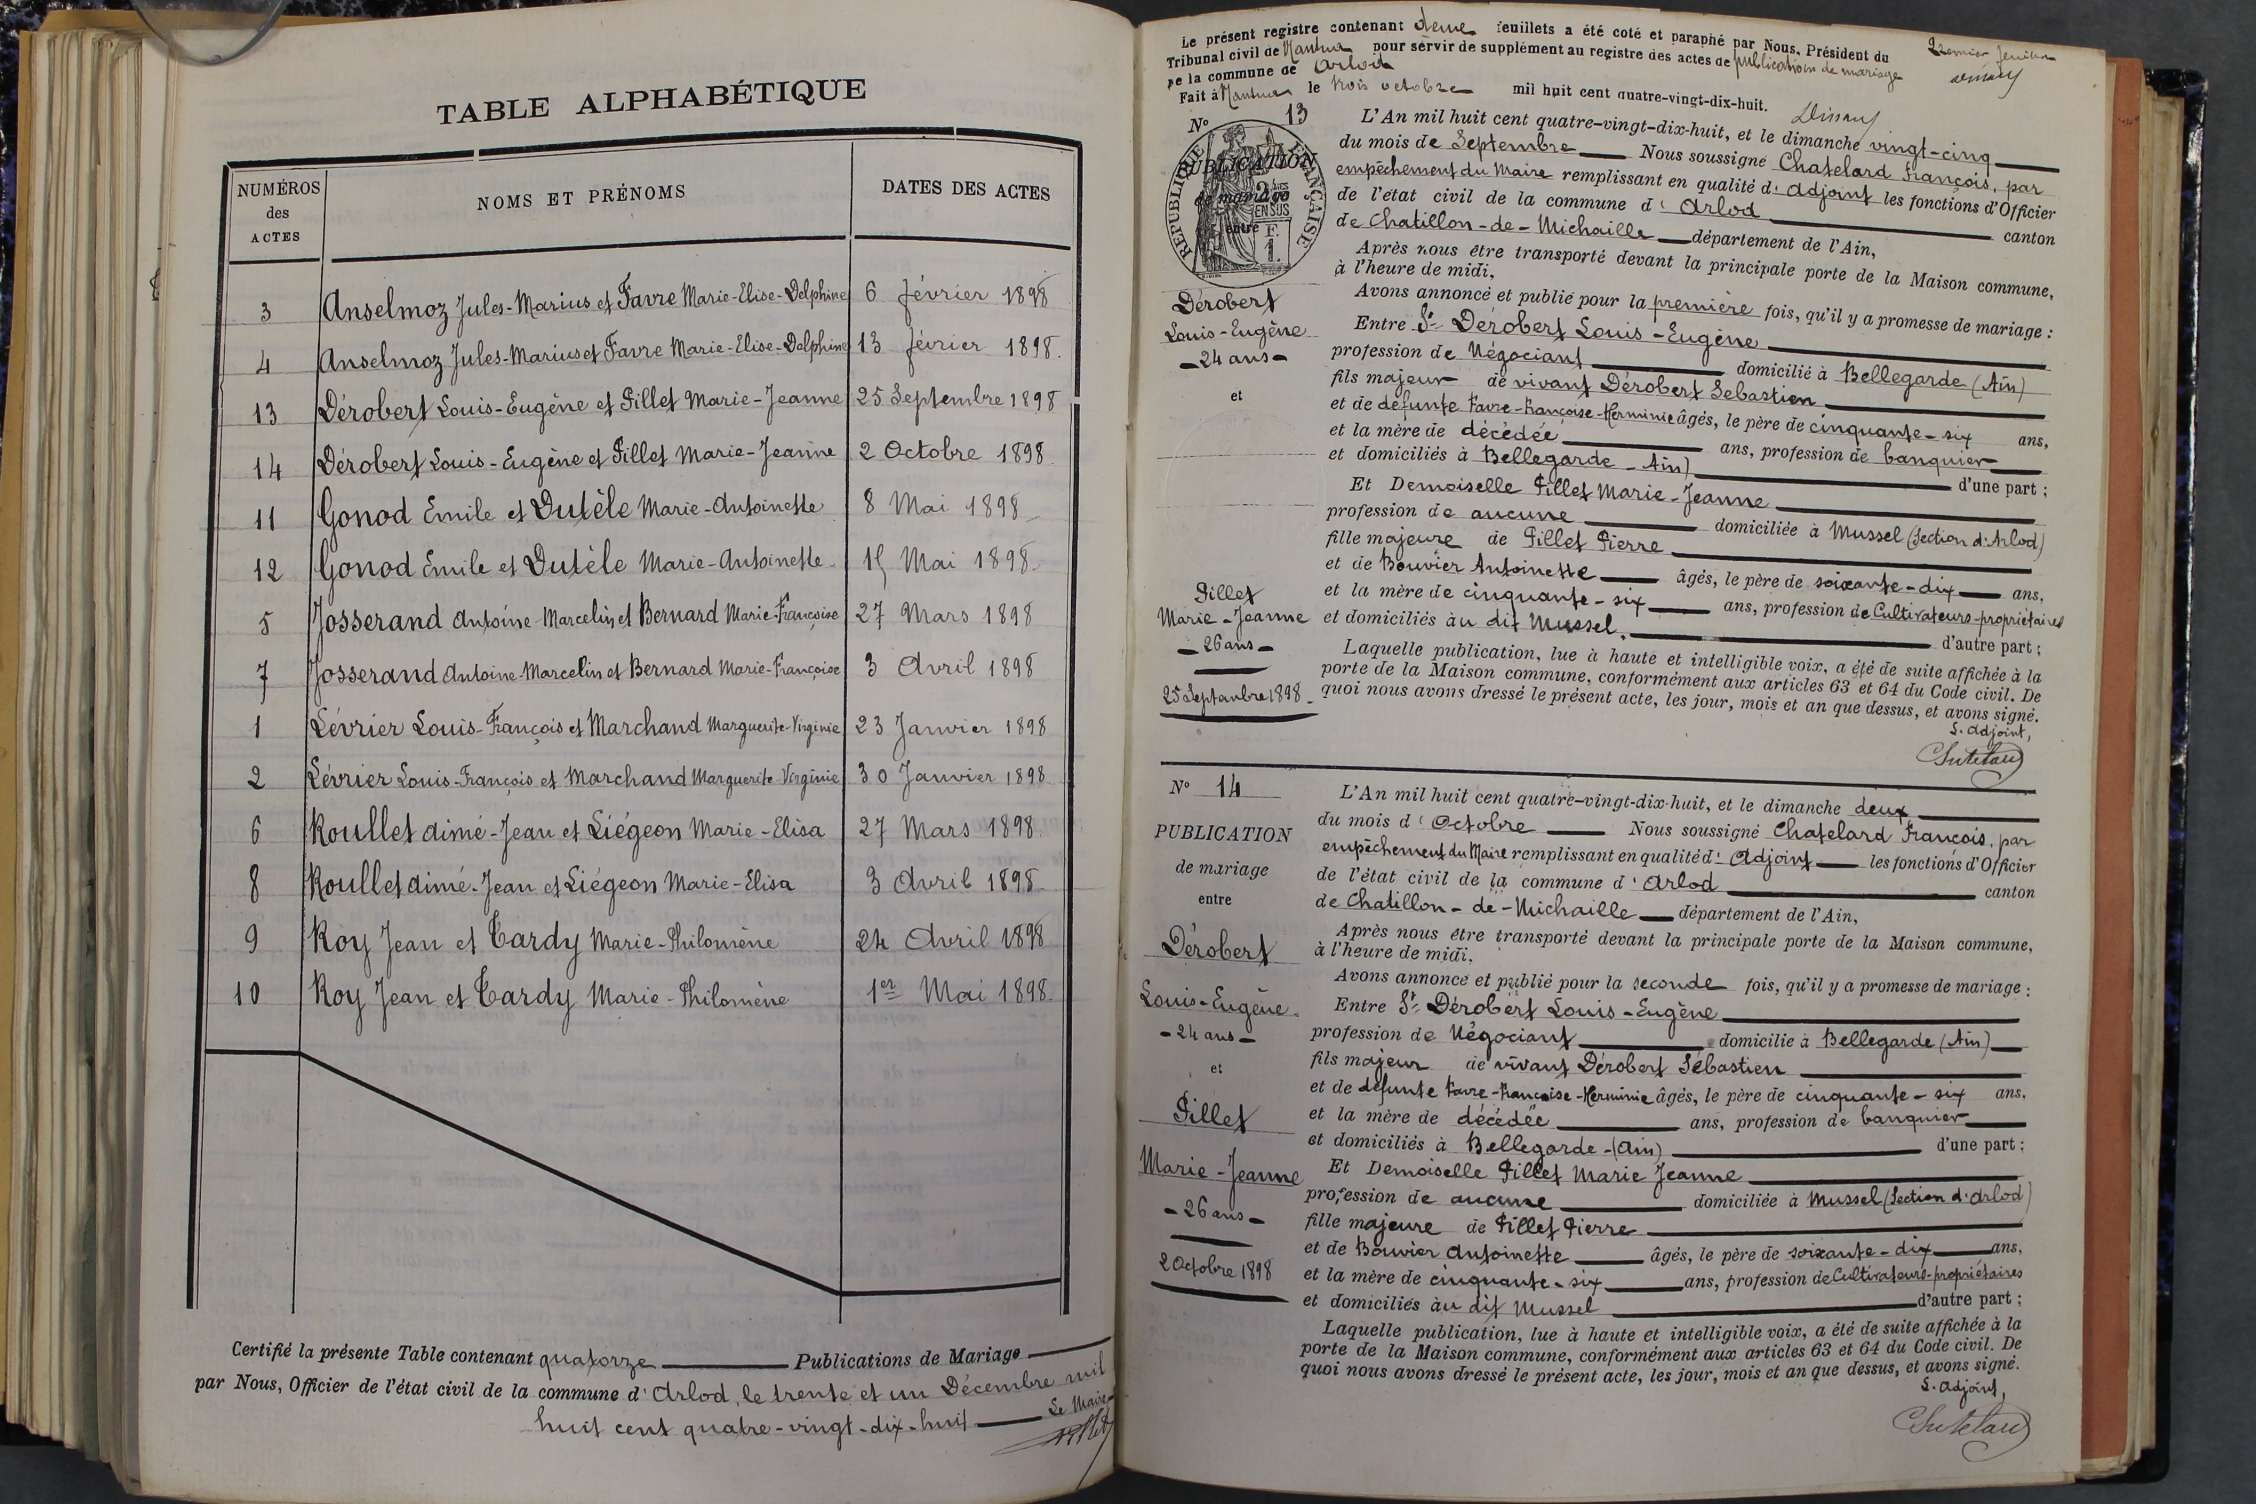 TABLE ALPHABÉTIQUE
NUMÉROS des ACTES
NOMS ET PRÉNOMS
DATES DES ACTES
3 Anselmoz Jules-Marius et Favre Marie-Elise-Delphine 6 février 1898
4 Anselmoz Jules-Marius et Favre Marie-Elise-Delphine 13 février 1898.
13 Dérobert Louis-Eugène et Pillet Marie-Jeanne 25 Septembre 1898
14 Dérobert Louis-Eugène et Pillet Marie-Jeanne 2 Octobre 1898.
11 Gonod Emile et Dutèle Marie-Antoinette 8 Mai 1898
12 Gonod Emile et Dutèle Marie-Antoinette 15 Mai 1898
5 Josserand Antoine-Marcelin et Bernard Marie-Françoise 27 Mars 1898
7 Josserand Antoine-Marcelin et Bernard Marie-Françoise 3 Avril 1898
1 Lévrier Louis-François et Marchand Marguerite-Virginie 23 Janvier 1898
2 Lévrier Louis-François et Marchand Marguerite-Virginie 30 Janvier 1898
6 Roullet Aimé-Jean et Liégeon Marie-Elisa 27 Mars 1898.
8 Roullet Aimé-Jean et Liégeon Marie-Elisa 3 Avril 1898
9 Roy Jean et Tardy Marie-Philomène 24 Avril 1898
10 Roy Jean et Tardy Marie-Philomène 1er Mai 1898.
Certifié la présente Table contenant quatorze Publications de Mariage
par Nous, Officier de l'état civil de la commune d'Arlod, le trente et un Décembre mil
huit cent quatre-vingt-dix-huit Le Maire
Pillet
Le présent registre contenant deux feuillets a été coté et paraphé par Nous, Président du
Tribunal civil de Nantua pour servir de supplément au registre des actes de publications de mariage
de la commune de Arlod
Fait à Nantua le trois octobre mil huit cent quatre-vingt-dix-huit.
Premier feuillet
N° 13
RÉPUBLIQUE FRANÇAISE
2/10es EN SUS
F. 1.
PUBLICATION
de mariage
entre
Dérobert
Louis-Eugène
24 ans
et
Pillet
Marie-Jeanne
26 ans
25 Septembre 1898
L'An mil huit cent quatre-vingt-dix-huit, et le dimanche vingt-cinq
du mois de Septembre Nous soussigné Chatelard François, par
empêchement du Maire remplissant en qualité d'Adjoint les fonctions d'Officier
de l'état civil de la commune d'Arlod canton
de Chatillon-de-Michaille département de l'Ain,
Après nous être transporté devant la principale porte de la Maison commune,
à l'heure de midi,
Avons annoncé et publié pour la première fois, qu'il y a promesse de mariage :
Entre Sr Dérobert Louis-Eugène
profession de Négociant domicilié à Bellegarde (Ain)
fils majeur de vivant Dérobert Sebastien
et de défunte Favre-Françoise-Herminie âgés, le père de cinquante-six ans,
et la mère de décédée ans, profession de banquier
et domiciliés à Bellegarde-Ain) d'une part ;
Et Demoiselle Pillet Marie-Jeanne
profession de aucune domiciliée à Mussel (Section d'Arlod)
fille majeure de Pillet Pierre
et de Bouvier Antoinette âgés, le père de soixante-dix ans,
et la mère de cinquante-six ans, profession de Cultivateurs-propriétaires
et domiciliés à au dit Mussel, d'autre part ;
Laquelle publication, lue à haute et intelligible voix, a été de suite affichée à la
porte de la Maison commune, conformément aux articles 63 et 64 du Code civil. De
quoi nous avons dressé le présent acte, les jour, mois et an que dessus, et avons signé.
L. Adjoint,
Chatelard
N° 14
PUBLICATION
de mariage
entre
Dérobert
Louis-Eugène
24 ans
et
Pillet
Marie-Jeanne
26 ans
2 Octobre 1898
L'An mil huit cent quatre-vingt-dix-huit, et le dimanche deux
du mois d'Octobre Nous soussigné Chatelard François, par
empêchement du Maire remplissant en qualité d'Adjoint les fonctions d'Officier
de l'état civil de la commune d'Arlod canton
de Chatillon-de-Michaille département de l'Ain,
Après nous être transporté devant la principale porte de la Maison commune,
à l'heure de midi,
Avons annoncé et publié pour la seconde fois, qu'il y a promesse de mariage :
Entre Sr Dérobert Louis-Eugène
profession de Négociant domicilié à Bellegarde (Ain)
fils majeur de vivant Dérobert Sébastien
et de défunte Favre-Françoise-Herminie âgés, le père de cinquante-six ans,
et la mère de décédée ans, profession de banquier
et domiciliés à Bellegarde-(Ain) d'une part ;
Et Demoiselle Pillet Marie Jeanne
profession de aucune domiciliée à Mussel (Section d'Arlod)
fille majeure de Pillet Pierre
et de Bouvier Antoinette âgés, le père de soixante-dix ans,
et la mère de cinquante-six ans, profession de Cultivateurs-propriétaires
et domiciliés à au dit Mussel d'autre part ;
Laquelle publication, lue à haute et intelligible voix, a été de suite affichée à la
porte de la Maison commune, conformément aux articles 63 et 64 du Code civil. De
quoi nous avons dressé le présent acte, les jour, mois et an que dessus, et avons signé.
L. Adjoint,
Chatelard